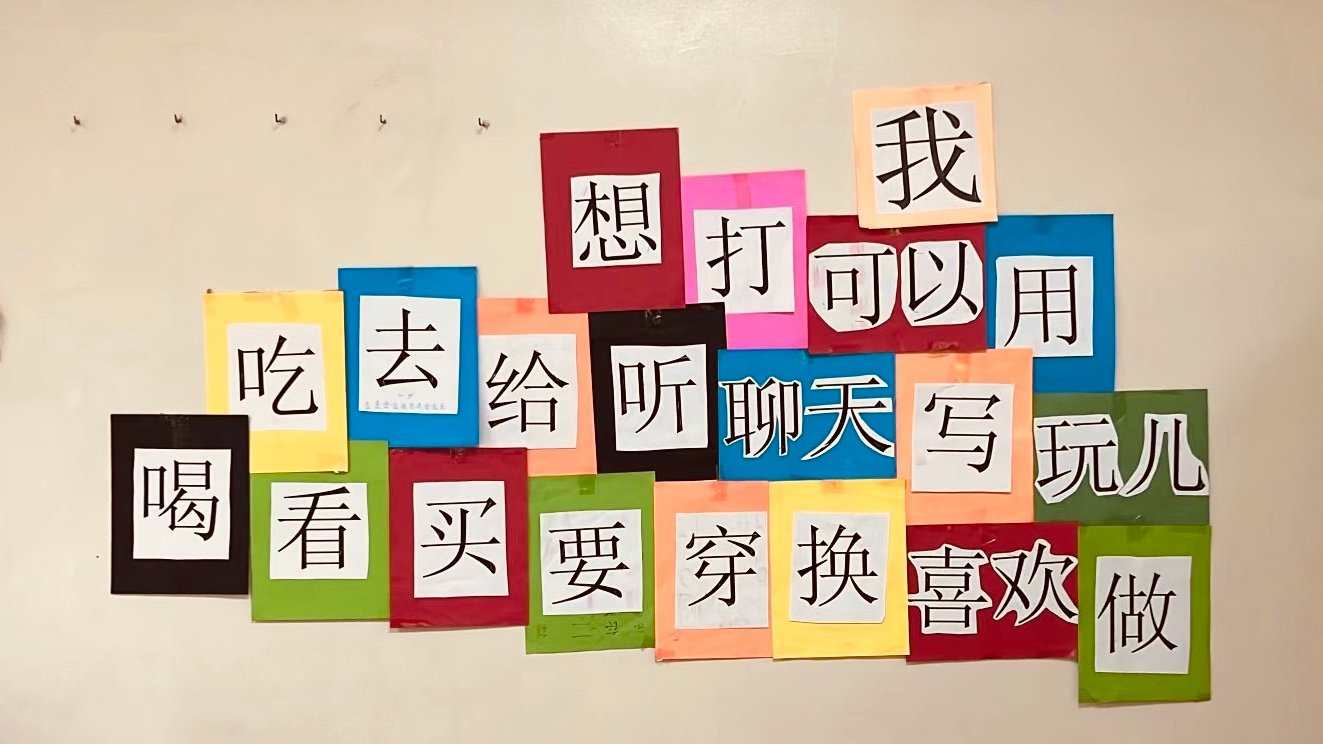 我
想 打 可以 用
吃 去 给 听 聊天 写 玩儿
喝 看 买 要 穿 换 喜欢 做